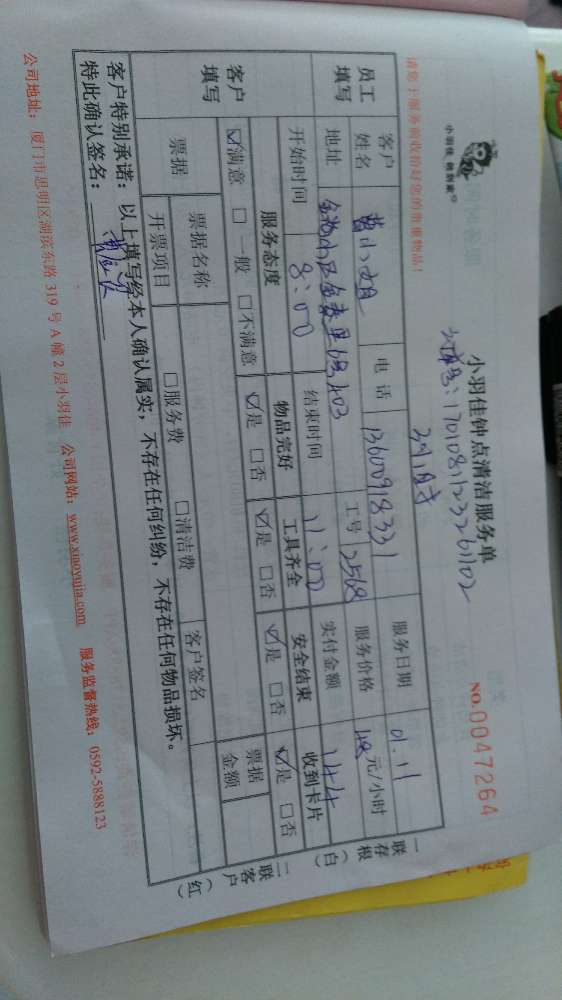 小羽佳 做到家
小羽佳钟点清洁服务单
NO.0047264
3小时
请您于服务前收拾好您的贵重物品!
员工填写
客户姓名 曹小姐 电话 13600918331 服务日期 01.11
地址 工号 2568 服务价格 48 元/小时
开始时间 8:00 结束时间 11:00 实付金额 144
客户填写
服务态度 物品完好 工具齐全 安全结束 收到卡片
☑满意 □一般 □不满意 ☑是 □否 ☑是 □否 ☑是 □否 ☑是 □否
票据 票据名称 □服务费 □清洁费 客户签名 票据金额
开票项目
客户特别承诺:以上填写经本人确认属实,不存在任何纠纷,不存在任何物品损坏。
特此确认签名:
一联存根(白) 二联客户(红)
公司地址:厦门市思明区湖滨东路 319 号 A 幢 2 层小羽佳 公司网站:www.xiaoyujia.com 服务监督热线:0592-5888123